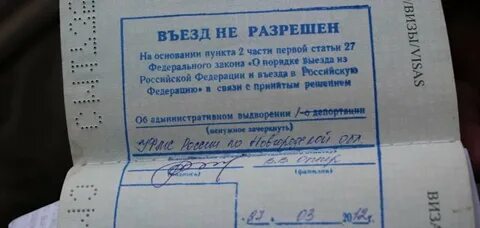 ВЪЕЗД НЕ РАЗРЕШЕН
На основании пункта 2 части первой статьи 27
Федерального закона «О порядке выезда из
Российской Федерации и въезда в Российскую
Федерацию» в связи с принятым решением
Об административном выдворении /о депортации
(ненужное зачеркнуть)
УФМС России по Новгородской обл
В.В.
(подпись) (фамилия)
27 03 2012 г.
/ВИЗЫ/VISAS
ВИЗ